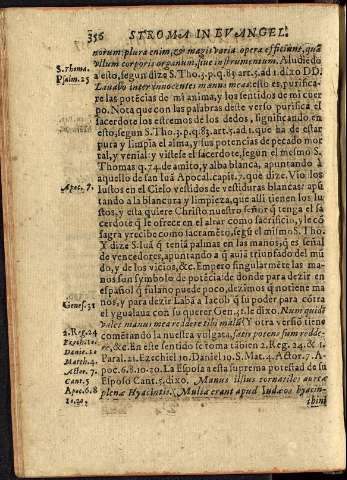 356 STROMA IN EVANGEL.
norum: plura enim, & magis varia opera efficiunt, quã
vllum corporis organum, siue instrumentum. Aludiedo
S. Thoma.
a esto, segun dize S. Tho. 3. p. q. 83 art. 5. ad. 1. dixo DD.
Psalm. 25
Lauabo inter innocentes manus meas: esto es, purifica-
re las potẽcias de mi anima, y los sentidos de mi cuer
po. Nota que con las palabras deste verso purifica el
sacerdote los estremos de los dedos, significando en
esto, segun S. Tho. 3. p. q. 83. art. 5. ad. 1. que ha de estar
pura y limpia el alma, y sus potencias de pecado mor
tal, y venial: y vistese el sacerdote, segun el mismo S.
Thomas q. 74. de amito, y alba blanca, apuntando à
aquello de san Iuã Apocal. capit. 7. que dize. Vio los
Apoc. 7.
Iustos en el Cielo vestidos de vestiduras blancas: apũ
tando a la blancura y limpieza, que alli tienen los Iu
stos, y esta quiere Christo nuestro señor q̃ tenga el sa
cerdote q̃ le ofrece en el altar como sacrificio, y le cõ
sagra y recibe como sacamẽto, segũ el mismo S. Tho.
Y dize S. Iuã q̃ tenià palmas en las manos, q̃ es señal
de vencedores, apuntando a q̃ auiã triunfado del mũ
do, y de los vicios, &c. Empero singularmẽte las ma-
nos son symbolo de potẽcia: de donde para dezir en
español q̃ fulano puede poco, dezimos q̃ no tiene ma
Genes. 31
nos, y para dezir Labã a Iacob q̃ su poder para cõtra
el ygualaua con su querer Gen. 31. le dixo. Nunquid
valet manus mea reddere tibi malũ? Y otra versiõ tiene
2. Reg. 24
comẽtando la nuestra vulgata, satis potens sum redde-
Ezechi. 10.
re, &c. En este sentido se toma tãbien 2. Reg. 24. & 1.
Danie. 10
Paral. 21. Ezechiel 10. Daniel 10. S. Mat. 4. Actor. 7. Apo
Matth. 4.
Actor. 7.
poc. 6. 8. 10. 20. La Esposa a esta suprema potestad de su
Cant. 5
Esposo Cant. 5. dixo. Manus illius tornatiles aureæ
Apoc. 6. 8
plenæ Hyacintis. Multa erant apud Iudæos hyacin-
10. 20.
thini